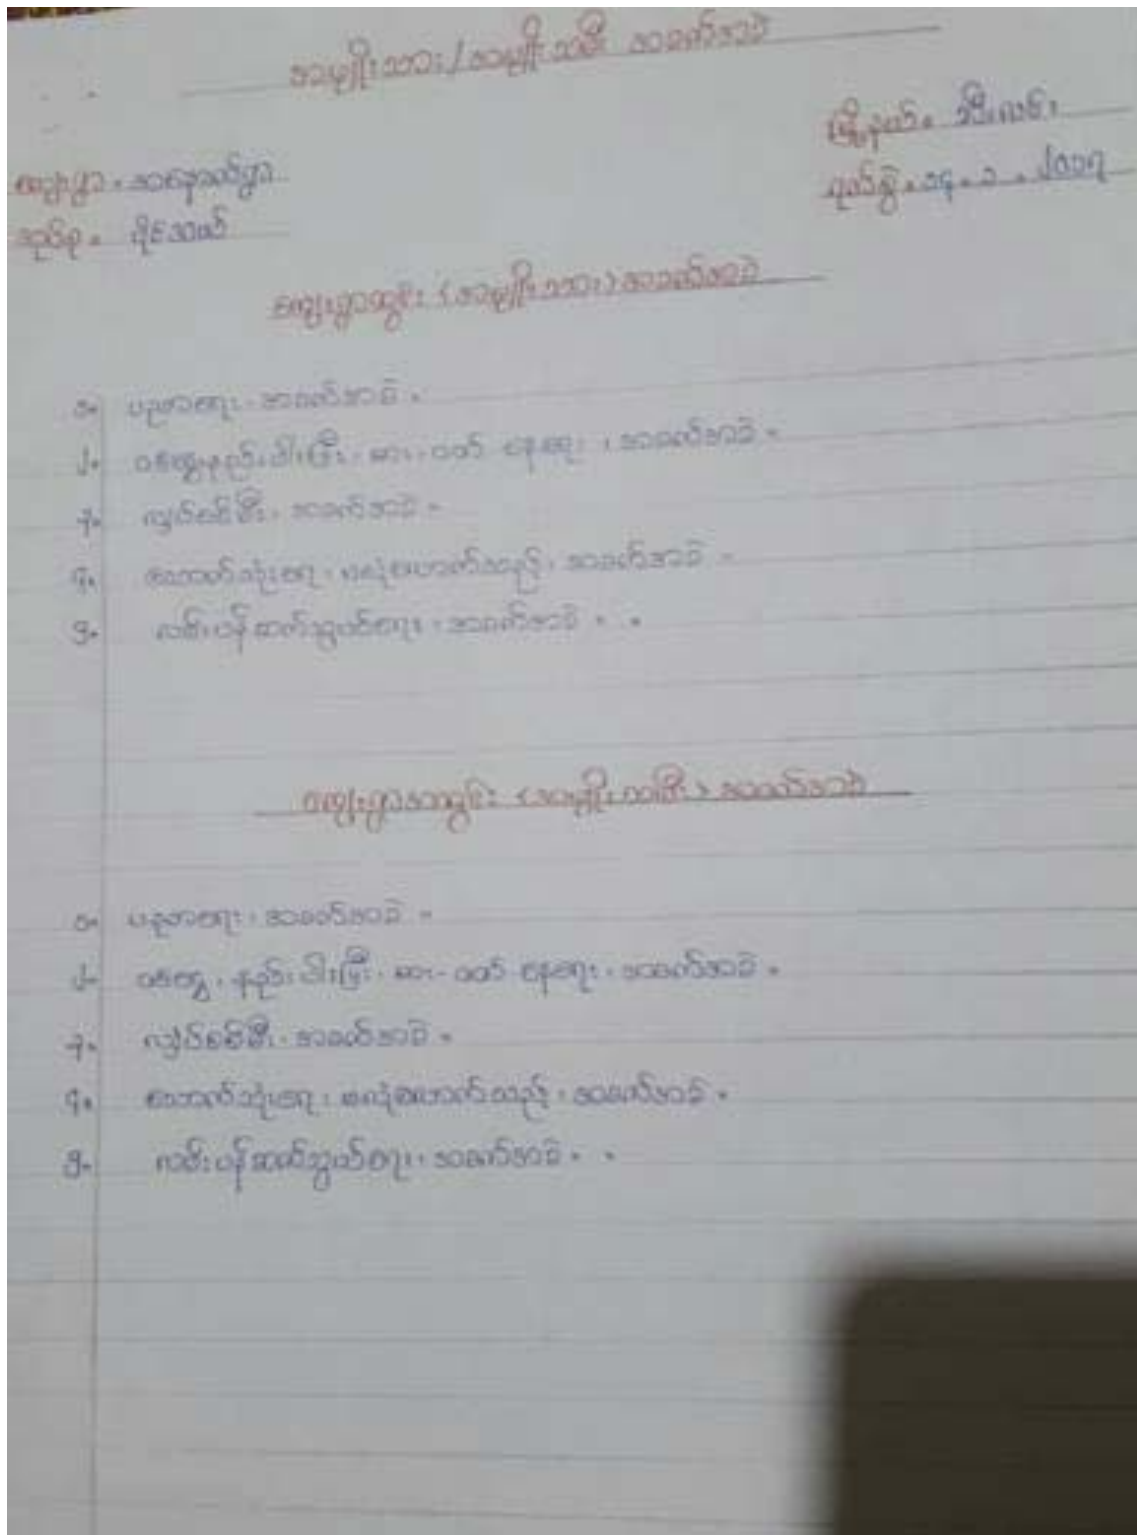 အမျိုးသား / အမျိုးသမီး အခက်အခဲ
မြို့နယ်။ သီးလင်း
ကျေးရွာ။ အနောက်ရွာ
ရက်စွဲ။ ၁၄.၁.၂၀၁၇
အုပ်စု။
ကျေးရွာတွင်း (အမျိုးသား) အခက်အခဲ
၁။ ပညာရေး၊ အခက်အခဲ။
၂။ ဝင်ငွေနည်းပါးပြီး၊ စား၊ ဝတ် နေရေး၊ အခက်အခဲ။
၃။ လျှပ်စစ်မီး၊ အခက်အခဲ။
၄။ သောက်သုံးရေ၊ မလုံလောက်သည့်၊ အခက်အခဲ။
၅။ လမ်းပန်းဆက်သွယ်ရေး၊ အခက်အခဲ။ ။
ကျေးရွာအတွင်း (အမျိုးသမီး) အခက်အခဲ
၁။ ပညာရေး၊ အခက်အခဲ။
၂။ ဝင်ငွေ၊ နည်းပါးပြီး၊ စား၊ ဝတ် နေရေး၊ အခက်အခဲ။
၃။ လျှပ်စစ်မီး၊ အခက်အခဲ။
၄။ သောက်သုံးရေ၊ မလုံလောက်သည့်၊ အခက်အခဲ။
၅။ လမ်းပန်းဆက်သွယ်ရေး၊ အခက်အခဲ။ ။